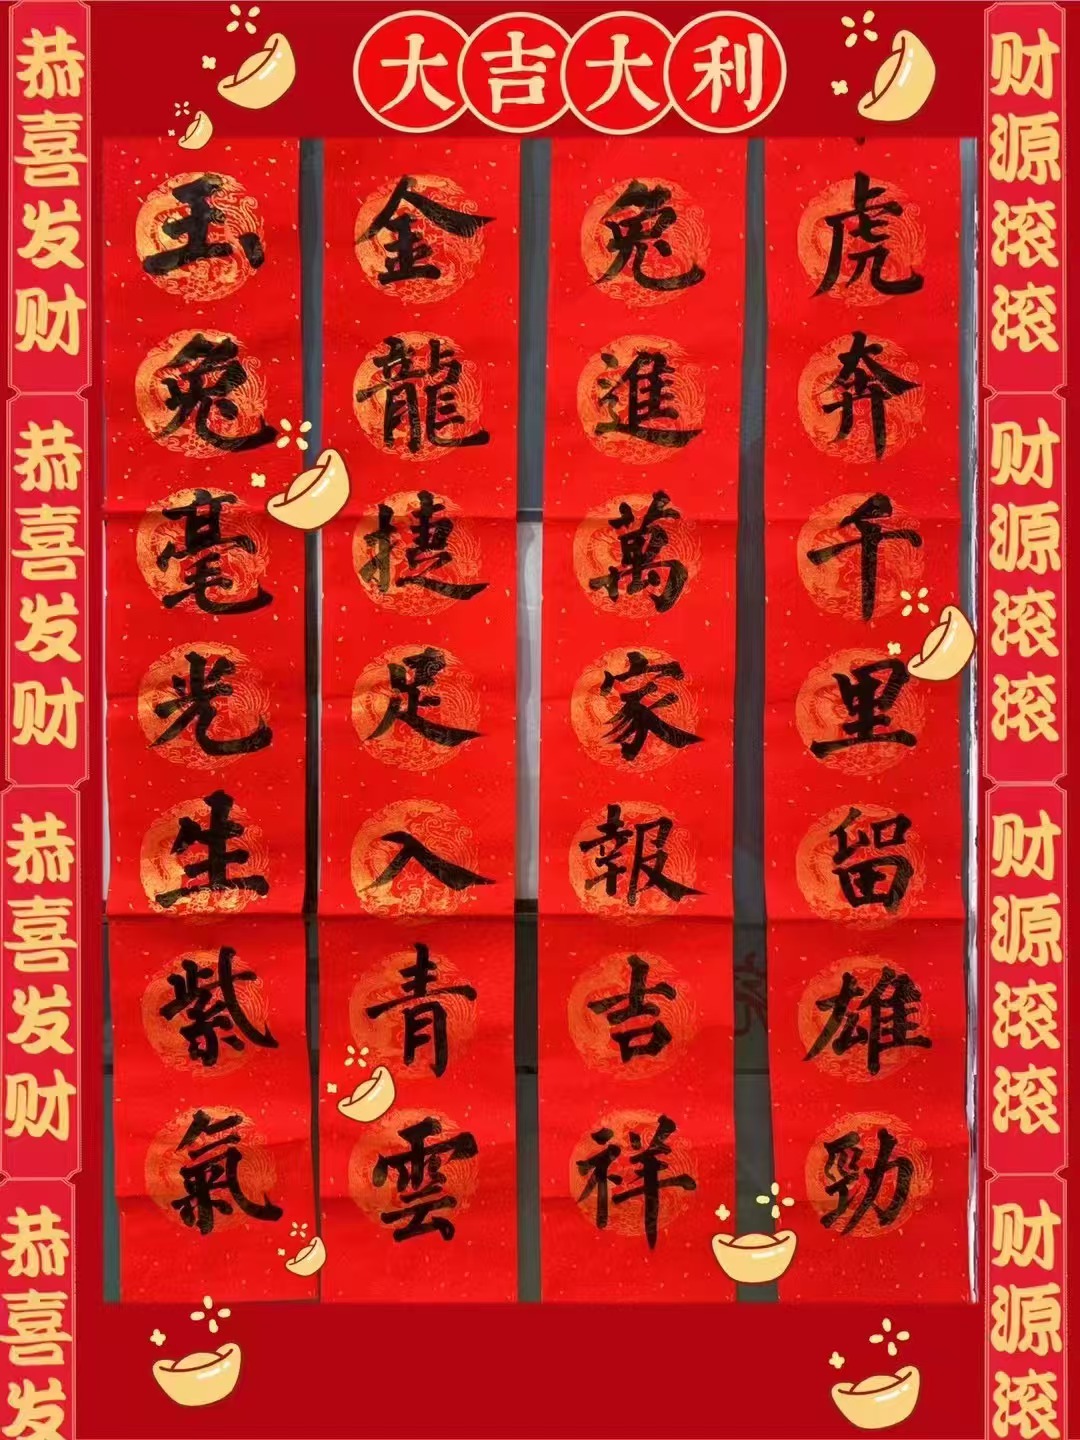 大吉大利
财源滚滚
财源滚滚
财源滚滚
财源滚
虎奔千里留雄勁
兔進萬家報吉祥
金龍捷足入青雲
玉兔毫光生紫氣
恭喜发财
恭喜发财
恭喜发财
恭喜发